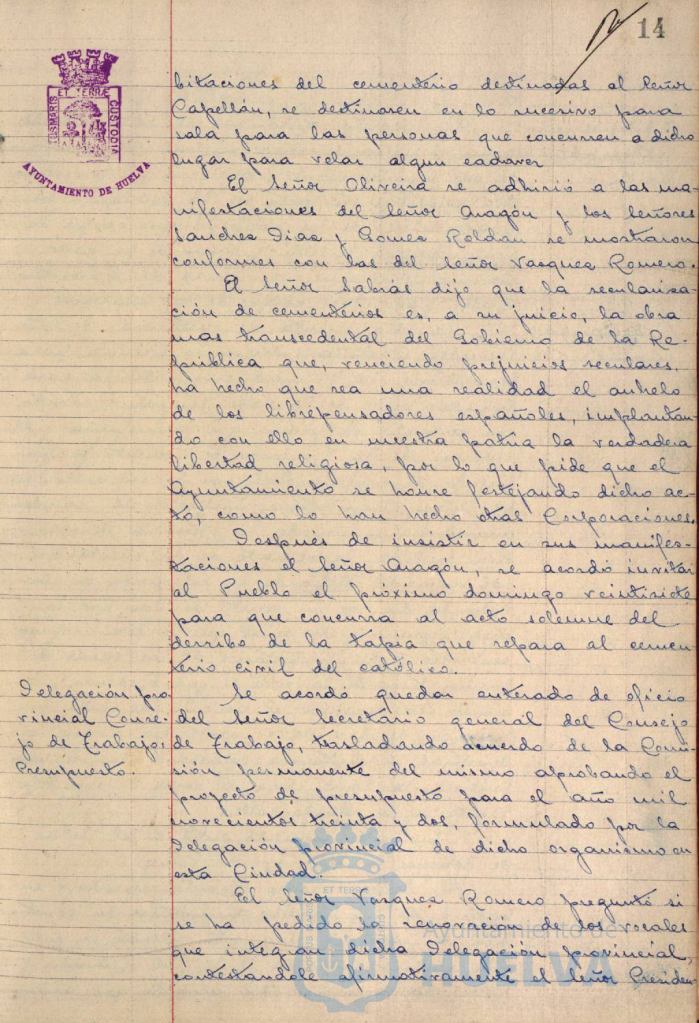 14
PORTUS MARIS
ET TERRÆ
CUSTODIA
AYUNTAMIENTO DE HUELVA
bitaciones del cementerio destinadas al Señor
Capellán, se destinaren en lo sucesivo para
sala para las personas que concurren a dicho
lugar para velar algun cadaver
El Señor Oliveira se adhirió a las ma
nifestaciones del Señor Aragón y los Señores
Sanchez Diaz y Gomez Roldan se mostraron
conformes con las del Señor Vazquez Romero.
El Señor Sabrás dijo que la seculariza
ción de cementerios es, a su juicio, la obra
mas transcedental del Gobierno de la Re-
pública que, venciendo prejuicios seculares,
ha hecho que sea una realidad el anhelo
de los librepensadores españoles, implantan
do con ello en nuestra patria la verdadera
libertad religiosa, por lo que pide que el
Ayuntamiento se honre festejando dicho ac-
to, como lo han hecho otras Corporaciones.
Después de insistir en sus manifes-
taciones el Señor Aragón, se acordó invitar
al Pueblo el próximo domingo veintisiete
para que concurra al acto solemne del
derribo de la tapia que separa al cemen
terio civil del católico.
Delegación pro-
vincial Conse-
jo de Trabajo:
Presupuesto.
Se acordó quedar enterado de oficio
del Señor Secretario general del Consejo
de Trabajo, trasladando acuerdo de la Comi-
sión permanente del mismo aprobando el
proyecto de presupuesto para el año mil
novecientos treinta y dos, formulado por la
Delegación provincial de dicho organismo en
esta Ciudad.
El Señor Vazquez Romero preguntó si
se ha pedido la renovción de los vocales
que integran dicha Delegación provincial,
contestandole afirmativamente el Señor Presiden
Ayuntamiento de
HUELVA